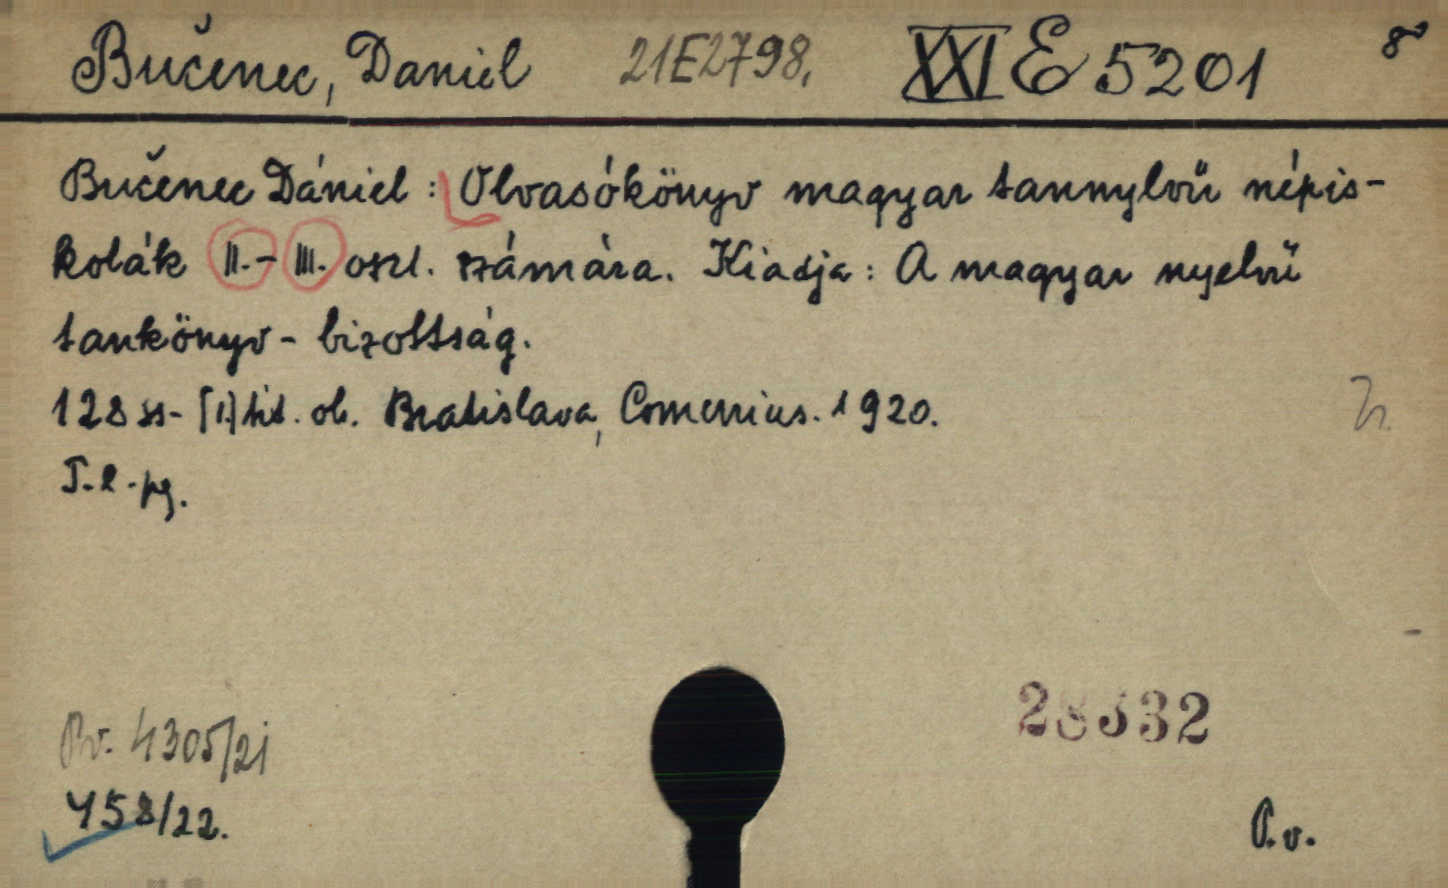 Bučenec, Daniel 21E2798, XXI E 5201 8°
Bučenec Dániel: Olvasókönyv magyar tannylvű népis-
kolák II.-III. oszl. számára. Kiadja: A magyar nyelvű
tankönyv-bizottság.
128 ss-[1] tit. ob. Bratislava, Comenius. 1920.
T. l. pg.
28532
Pv. 4305/21
458/22.
P.v.